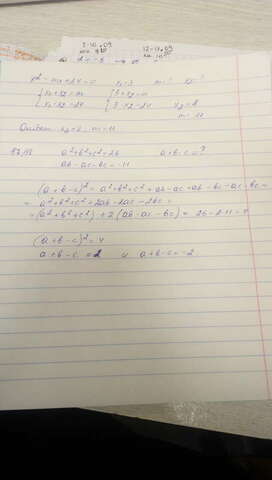 x² - mx + 24 = 0 x₁ = 3 m - ? x₂ - ?
{ x₁ + x₂ = m { 3 + x₂ = m
{ x₁ · x₂ = 24 { 3 · x₂ = 24 x₂ = 8
m = 11
Ответ: x₂ = 8, m = 11
a² + b² + c² = 26 a + b - c = ?
ab - ac - bc = -11
(a + b - c)² = a² + b² + c² + ab - ac + ab - bc - ac - bc =
= a² + b² + c² + 2ab - 2ac - 2bc =
= (a² + b² + c²) + 2(ab - ac - bc) = 26 - 2·11 = 4
(a + b - c)² = 4
a + b - c = 2 и a + b - c = -2